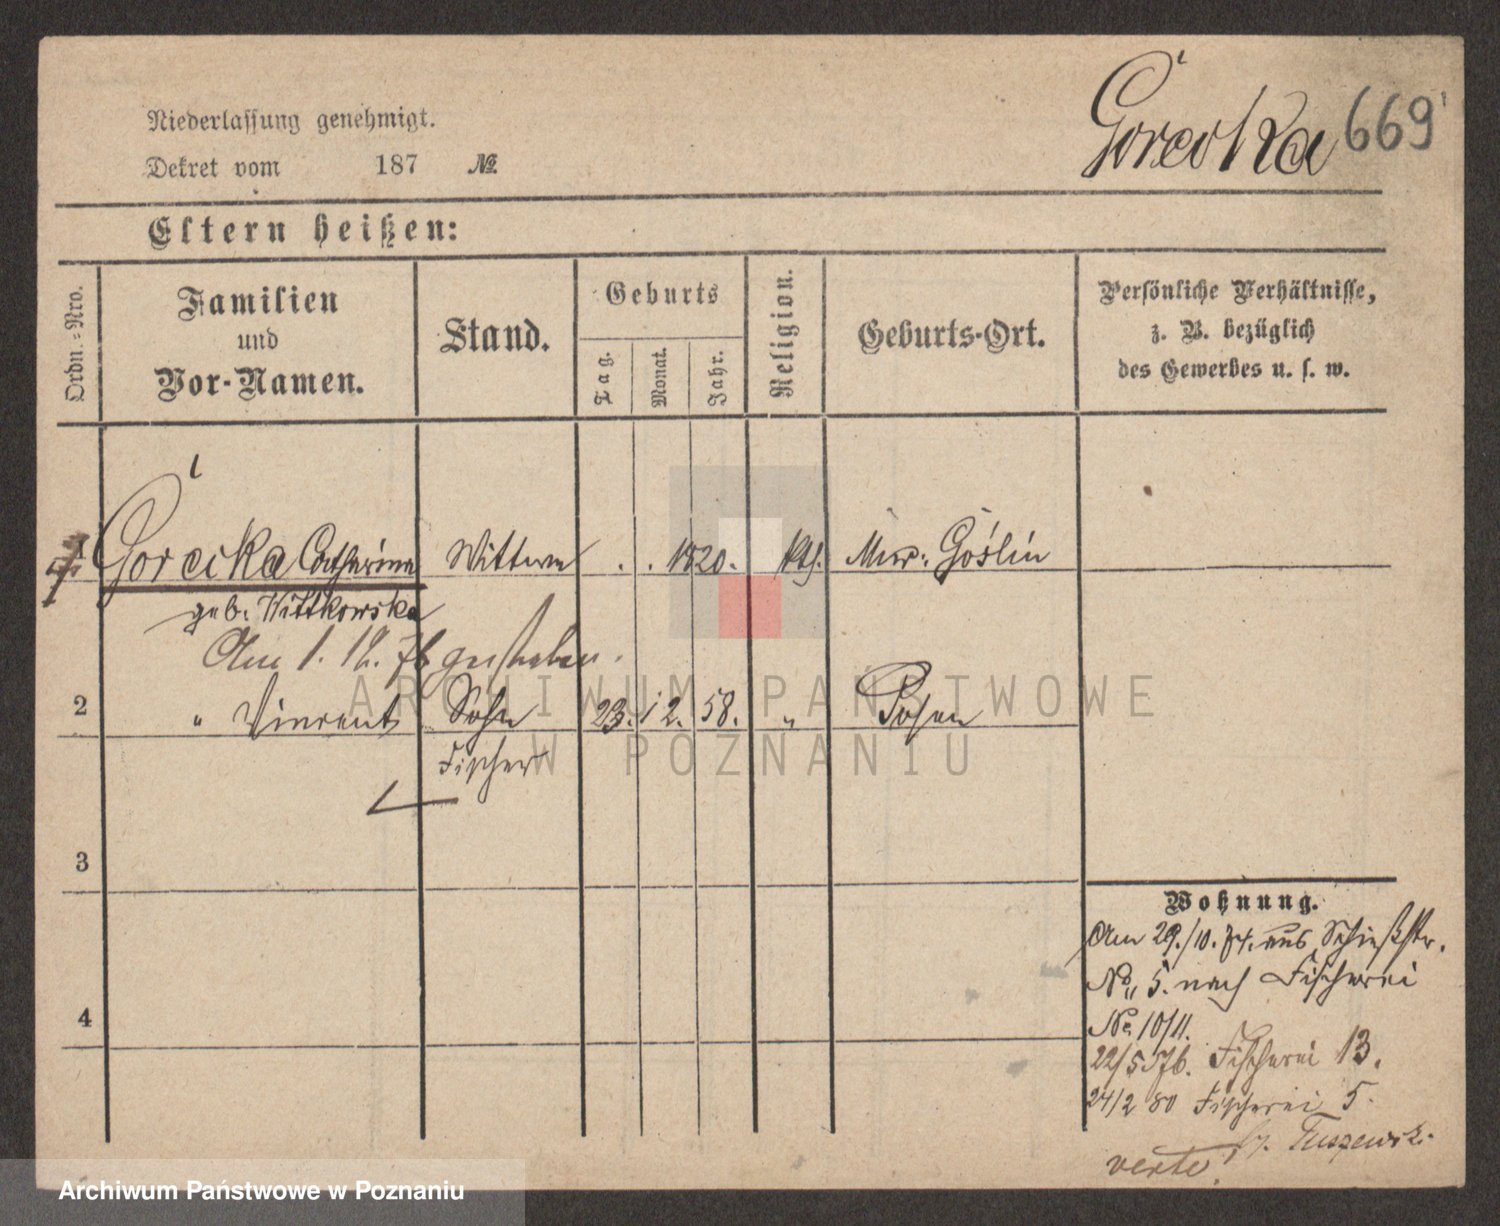 Górecka 669
Niederlassung genehmigt.
Dekret vom 187 №
Eltern heißen:
Ordn.-Nro.
Familien
und
Vor-Namen.
Stand.
Geburts
Tag.
Monat.
Jahr.
Religion.
Geburts-Ort.
Persönliche Verhältnisse,
z. B. bezüglich
des Gewerbes u. s. w.
1 Górecka Catharina Wittwe . . 1820. kth. Mur: Goślin
geb. Wittkowska
Am 1. 12. 76 gestorben.
2 " Vincent Sohn 23. 12. 58. " Posen
Fischer
3
4
Wohnung.
Am 29./10. 74. aus Schießstr.
No 5. nach Fischerei
No 10/11.
22/5 76. Fischerei 13.
24/2 80 Fischerei 5.
Tuszewski
verte.
ARCHIWUM PAŃSTWOWE
W POZNANIU
Archiwum Państwowe w Poznaniu